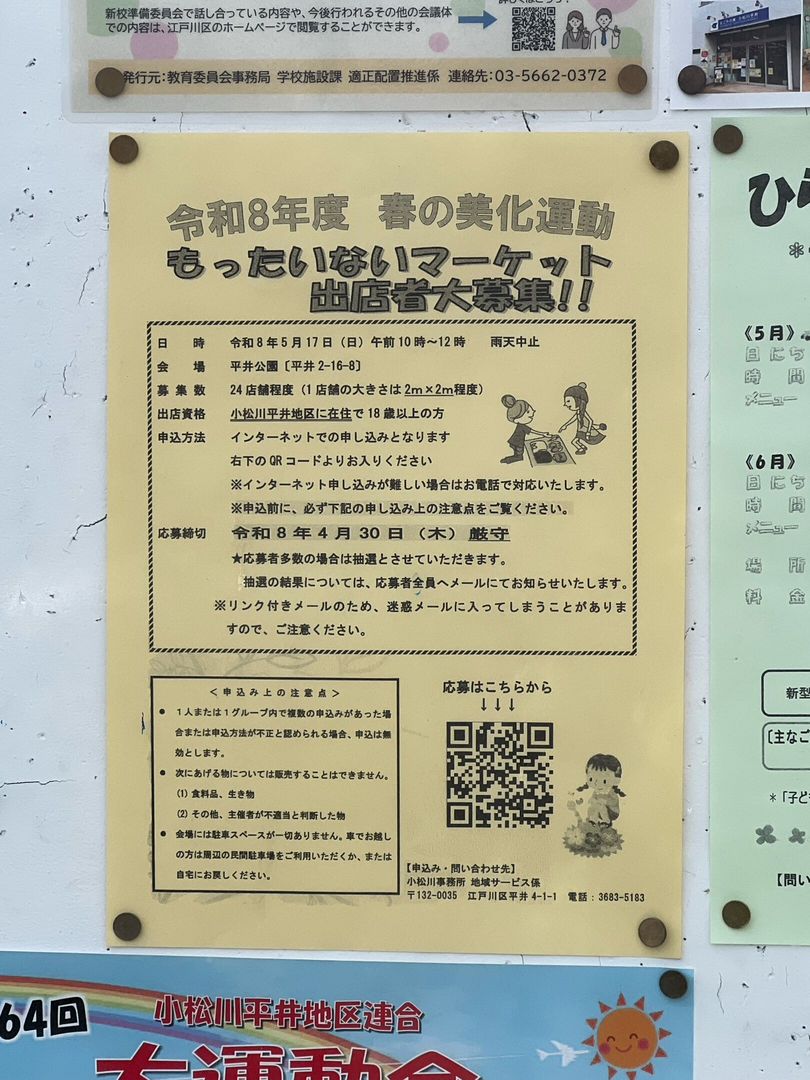 新校準備委員会で話し合っている内容や、今後行われるその他の会議体
での内容は、江戸川区のホームページで閲覧することができます。
発行元：教育委員会事務局 学校施設課 適正配置推進係 連絡先：03-5662-0372
令和8年度 春の美化運動
もったいないマーケット
出店者大募集!!
日時 令和8年5月17日（日）午前10時～12時 雨天中止
会場 平井公園〔平井2-16-8〕
募集数 24店舗程度（1店舗の大きさは2m×2m程度）
出店資格 小松川平井地区に在住で18歳以上の方
申込方法 インターネットでの申し込みとなります
右下のQRコードよりお入りください
※インターネット申し込みが難しい場合はお電話で対応いたします。
※申込前に、必ず下記の申し込み上の注意点をご覧ください。
応募締切 令和8年4月30日（木）厳守
★応募者多数の場合は抽選とさせていただきます。
抽選の結果については、応募者全員へメールにてお知らせいたします。
※リンク付きメールのため、迷惑メールに入ってしまうことがありま
すので、ご注意ください。
＜申込み上の注意点＞
● 1人または1グループ内で複数の申込みがあった場
合または申込方法が不正と認められる場合、申込は無
効とします。
● 次にあげる物については販売することはできません。
(1) 食料品、生き物
(2) その他、主催者が不適当と判断した物
● 会場には駐車スペースが一切ありません。車でお越し
の方は周辺の民間駐車場をご利用いただくか、または
自宅にお戻しください。
応募はこちらから
↓↓↓
【申込み・問い合わせ先】
小松川事務所 地域サービス係
〒132-0035 江戸川区平井4-1-1 電話：3683-5183
ひ
《5月》
日にち
時間
メニュー
《6月》
日にち
時間
メニュー
場所
料金
新型
〔主なご
＊「子ど
【問い
64回
小松川平井地区連合
大運動会